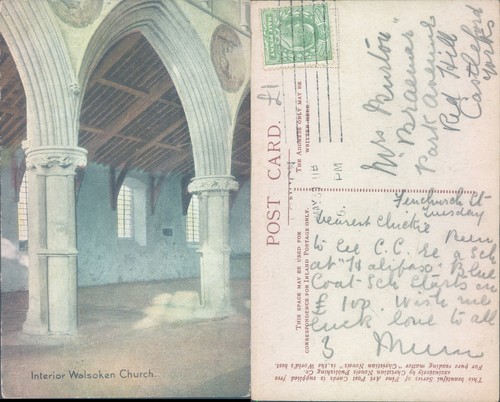 Interior Walsoken Church.
POST CARD.
THE ADDRESS ONLY MAY BE
WRITTEN HERE
£1
Mrs Burton
"Braemar"
Park Avenue
Red Hill
Castleford
Yorks
THIS SPACE MAY BE USED FOR
CORRESPONDENCE FOR INLAND POSTAGE ONLY
MAY
PM
Fenchurch St
Tuesday
Dearest Chickie
to Coll C.C. Sch
at "Halifax" Blue
Coat Sch Starts on
£ 10p. Wish me
luck love to all
3 Mum
This beautiful Series of Fine Art Post Cards is supplied free
exclusively by Christian Novels Publishing Co.
pure reading matter "Christian Novels" is the World's best.